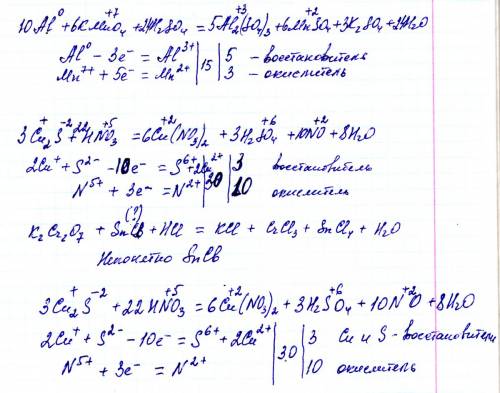 +3 +7 +2
10Al⁰ + 6KMnO₄ + 24H₂SO₄ = 5Al₂(SO₄)₃ + 6MnSO₄ + 3K₂SO₄ + 24H₂O
Al⁰ - 3e⁻ = Al³⁺ | 15 | 5 - восстановитель
Mn⁷⁺ + 5e⁻ = Mn²⁺ | 3 - окислитель
+ -2 +5 +2 +6 +2
3Cu₂S + 22HNO₃ = 6Cu(NO₃)₂ + 3H₂SO₄ + 10NO + 8H₂O
2Cu⁺ + S²⁻ - 10e⁻ = S⁶⁺ + 2Cu²⁺ | 30 | 3 восстановитель
N⁵⁺ + 3e⁻ = N²⁺ | 10 окислитель
(?)
K₂Cr₂O₇ + SnCl + HCl = KCl + CrCl₃ + SnCl₄ + H₂O
Непонятно SnCl
+ -2 +5 +2 +6 +2
3Cu₂S + 22HNO₃ = 6Cu(NO₃)₂ + 3H₂SO₄ + 10NO + 8H₂O
2Cu⁺ + S²⁻ - 10e⁻ = S⁶⁺ + 2Cu²⁺ | 30 | 3 Cu и S - восстановители
N⁵⁺ + 3e⁻ = N²⁺ | 10 окислитель